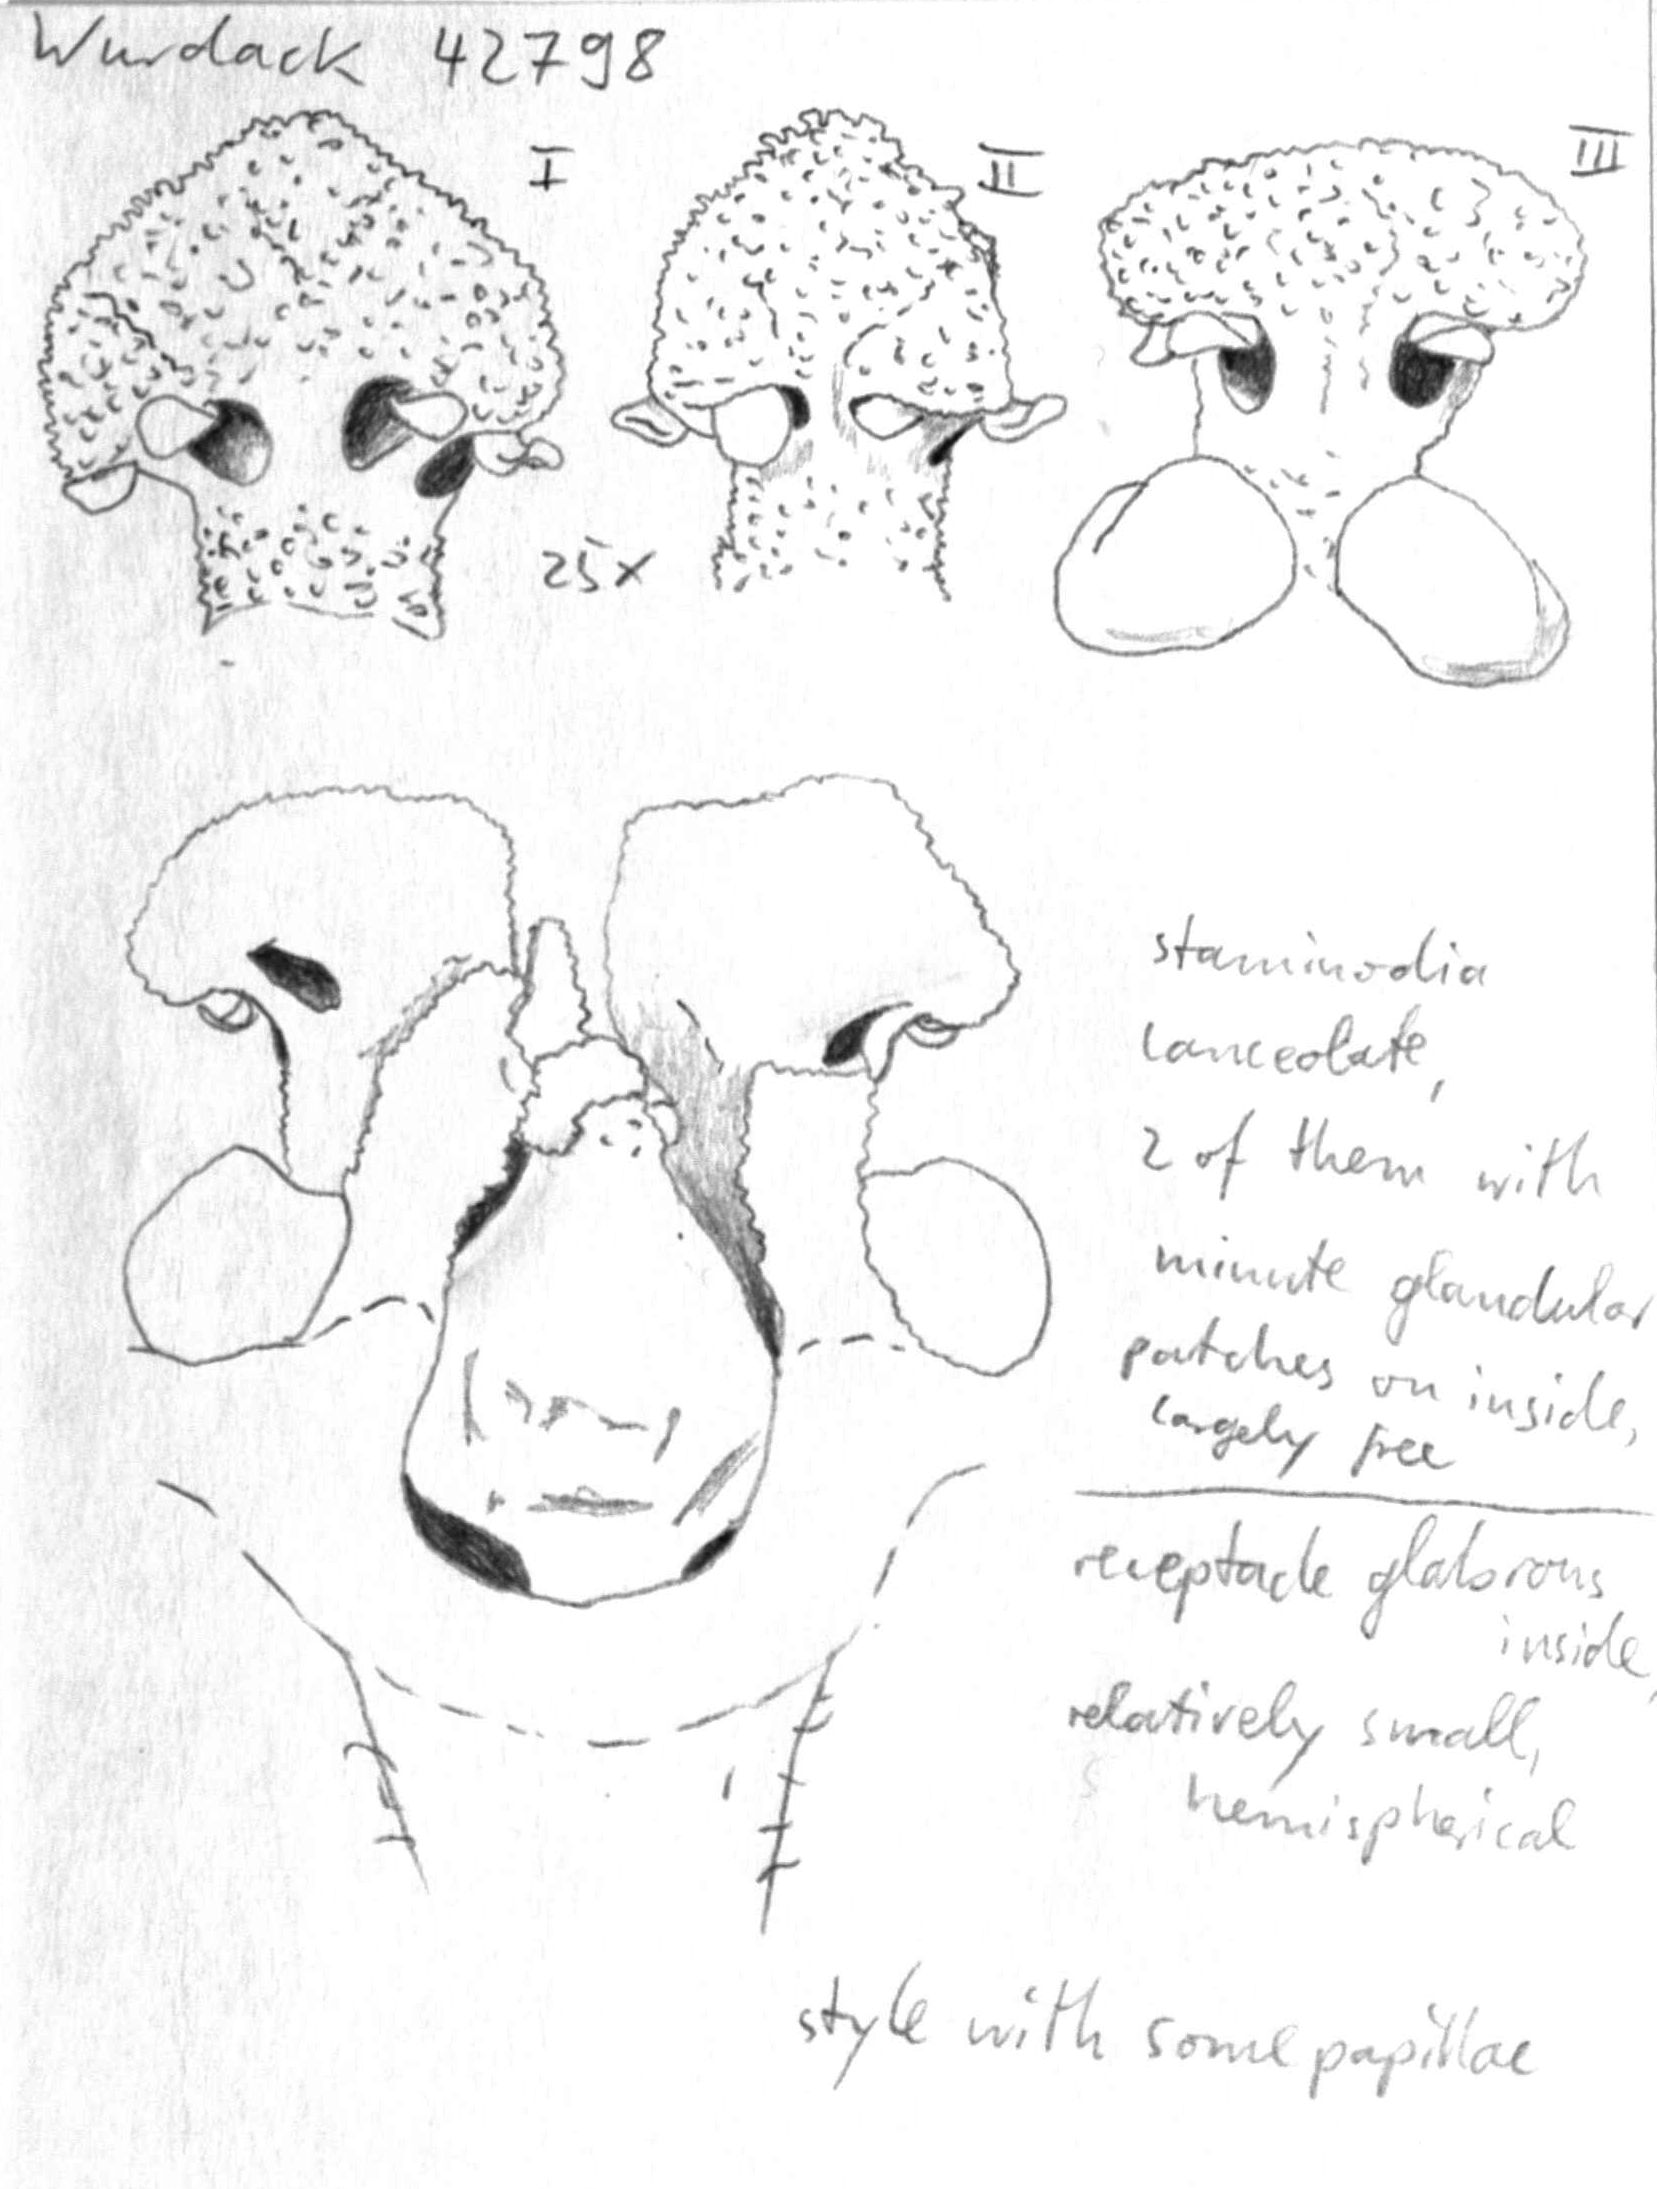 Wurdack 42798
I
II
III
25x
staminodia
lanceolate,
2 of them with
minute glandular
patches on inside,
largely free
receptacle glabrous
inside,
relatively small,
hemispherical
style with some papillae